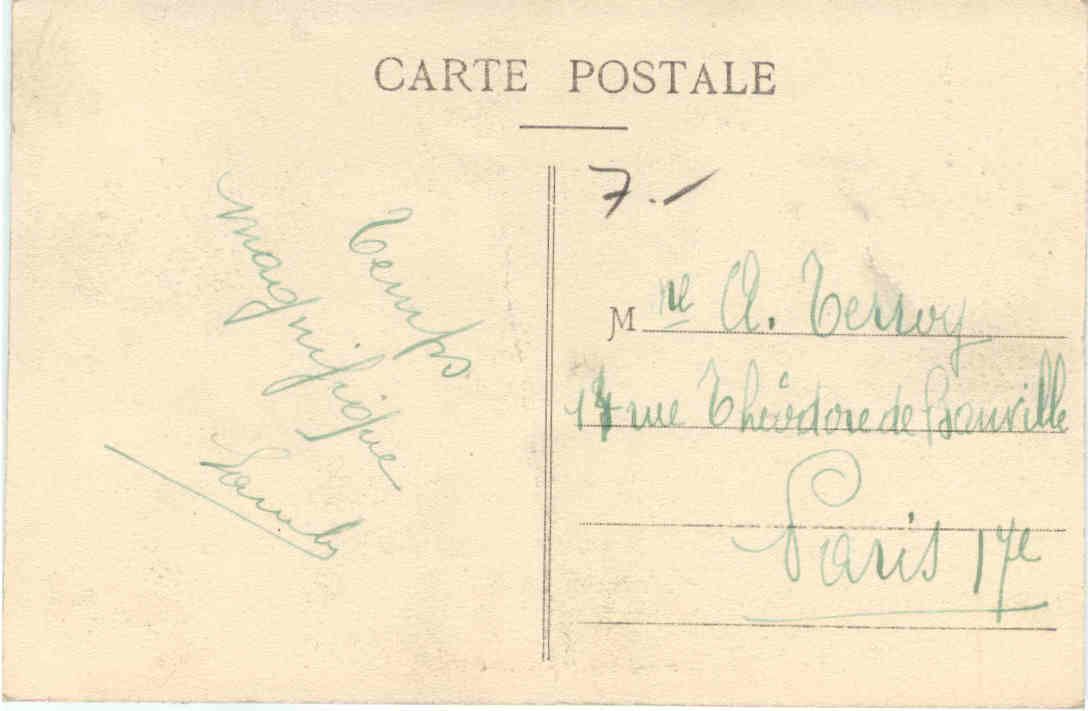 CARTE POSTALE
7.-
Temps
magnifique
Mlle A. Terroy
rue Théodore de Banville
Paris 17e